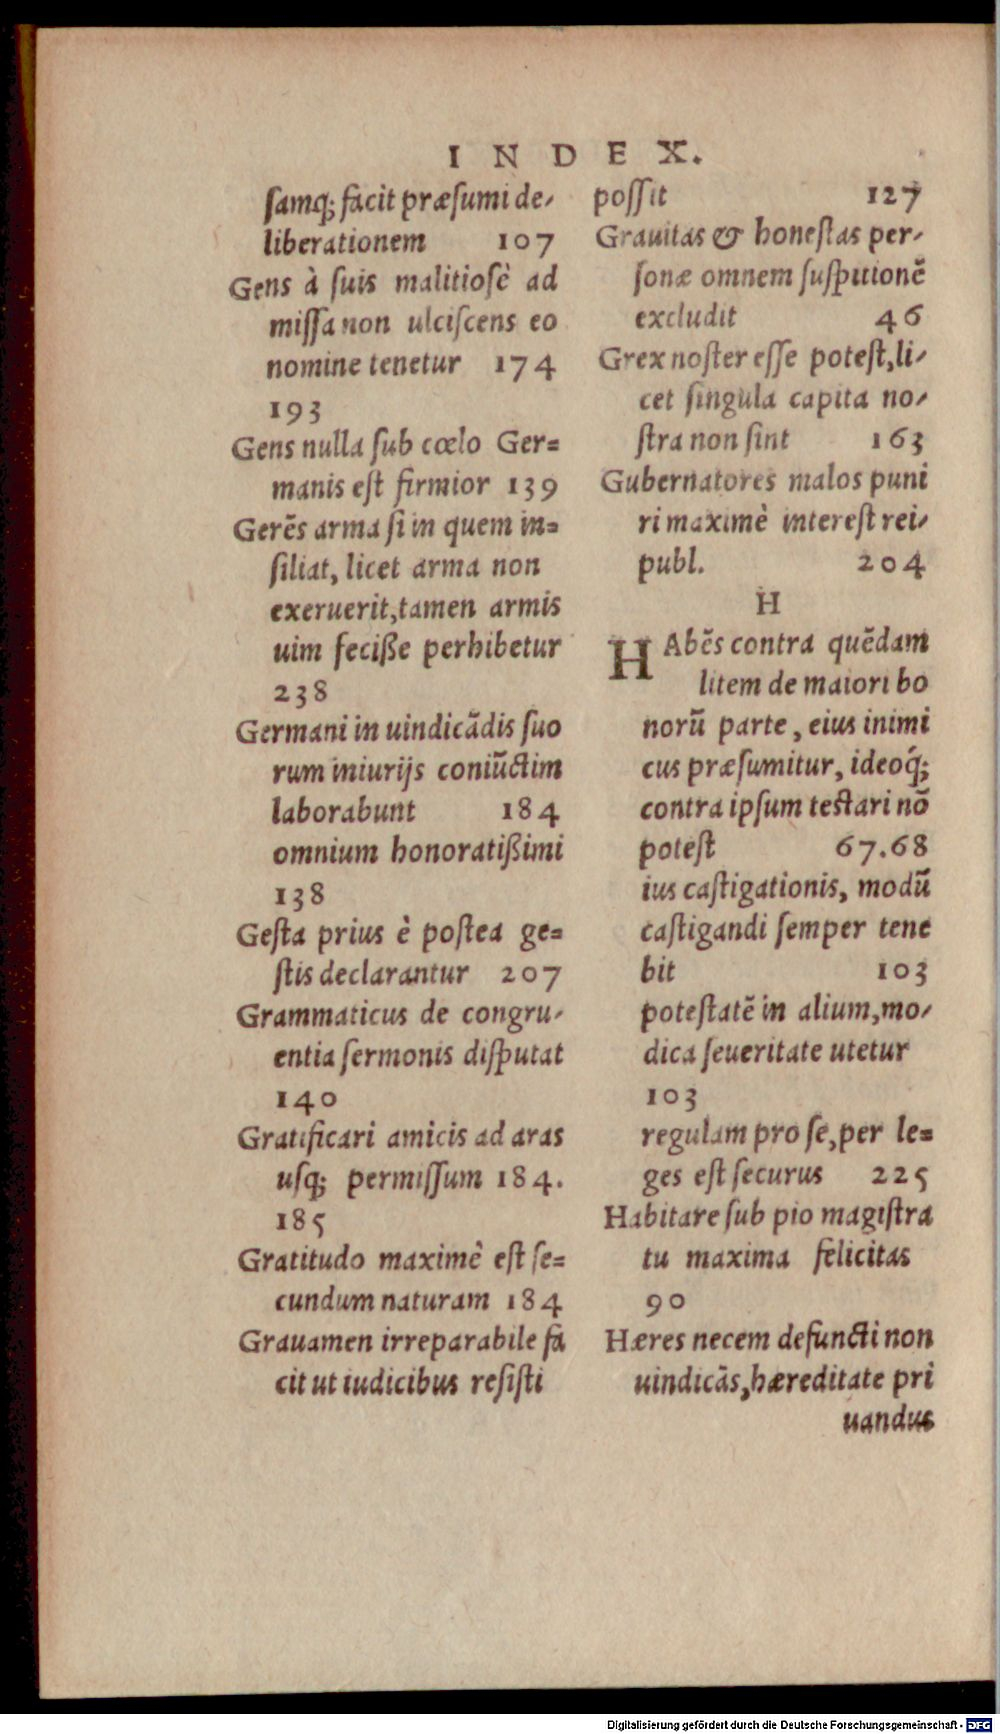 INDEX.
ſamq́; facit præſumi de-
liberationem 107
Gens à ſuis malitioſè ad
miſſa non ulciſcens eo
nomine tenetur 174
193
Gens nulla ſub cœlo Ger=
manis eſt firmior 139
Gerẽs arma ſi in quem in=
ſiliat, licet arma non
exeruerit, tamen armis
uim feciße perhibetur
238
Germani in uindicãdis ſuo
rum iniurijs coniũctim
laborabunt 184
omnium honoratißimi
138
Geſta prius è poſtea ge=
ſtis declarantur 207
Grammaticus de congru-
entia ſermonis diſputat
140
Gratificari amicis ad aras
uſq; permiſſum 184.
185
Gratitudo maximè eſt ſe=
cundum naturam 184
Grauamen irreparabile fa
cit ut iudicibus reſiſti
poſſit 127
Grauitas & honeſtas per-
ſonæ omnem ſuſpitionẽ
excludit 46
Grex noſter eſſe poteſt, li-
cet ſingula capita no-
ſtra non ſint 163
Gubernatores malos puni
ri maximè intereſt rei-
publ. 204
H
HAbẽs contra quẽdam
litem de maiori bo
norũ parte, eius inimi
cus præſumitur, ideoq́;
contra ipſum teſtari nõ
poteſt 67.68
ius caſtigationis, modũ
caſtigandi ſemper tene
bit 103
poteſtatẽ in alium, mo-
dica ſeueritate utetur
103
regulam pro ſe, per le=
ges eſt ſecurus 225
Habitare ſub pio magiſtra
tu maxima felicitas
90
Hæres necem defuncti non
uindicãs, hæreditate pri
uandus
Digitalisierung gefördert durch die Deutsche Forschungsgemeinschaft - DFG